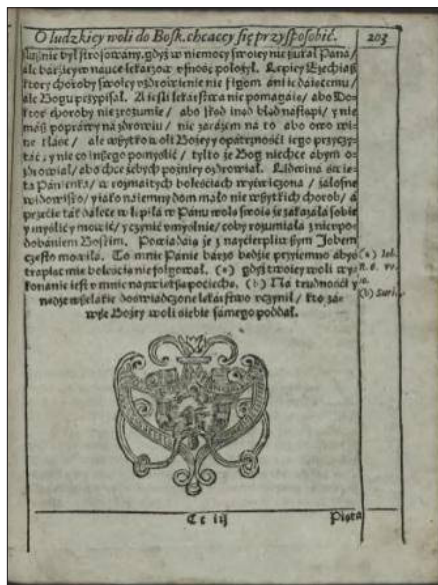 O ludzkiey woli do Bosk. chcącey się przysposobić. 203
słusznie był strofowany, gdyż w niemocy swoiey nie szukał Pana/
ale barziey w nauce lekarzow ufność położył. Lepiey Ezechiasz
ktory choroby swoiey uzdrowienie nie figom ani ie daiącemu/
ale Bogu przypisał. A iesli lekarstwa nie pomagaią/ abo Do-
ktor choroby nie zrozumie/ abo skąd inąd błąd nastąpi/ y nie
masz poprawy na zdrowiu/ nie zarazem na to abo owo wi-
nę kłaść/ ale wszytko woli Bożey y opatrzności iego przyczy-
tać/ y nie co inszego pomyślić/ tylko że Bog niechce abym o-
zdrowiał/ abo chce żebych pozniey ozdrowiał. Lidwina świę-
ta Panienka/ w rozmaitych boleściach wyćwiczona/ żałosne
widowisko/ y iako naiemny dom mało nie wszytkich chorob/ a
przecię tak dalece wlepiła w Panu wolą swoię że zakazała sobie
y myślić y mowić/ y czynić umyślnie/ coby rozumiała z nieupo-
dobaniem Boskim. Powiadaią że z naycierpliwszym Jobem
często mowiła. To mnie Panie barzo będzie przyiemno abyś
trapiąc mię boleścią nie folgował. (a) gdyż twoiey woli wy-
konanie iest v mnie naywiętsza pociecha. (b) Na trudności y
nędze wszelakie doświadczone lekarstwo vczynił/ kto za-
wsze Bożey woli siebie samego poddał.
(a) Iob.
(b) Suri.
Cc iij Piąta